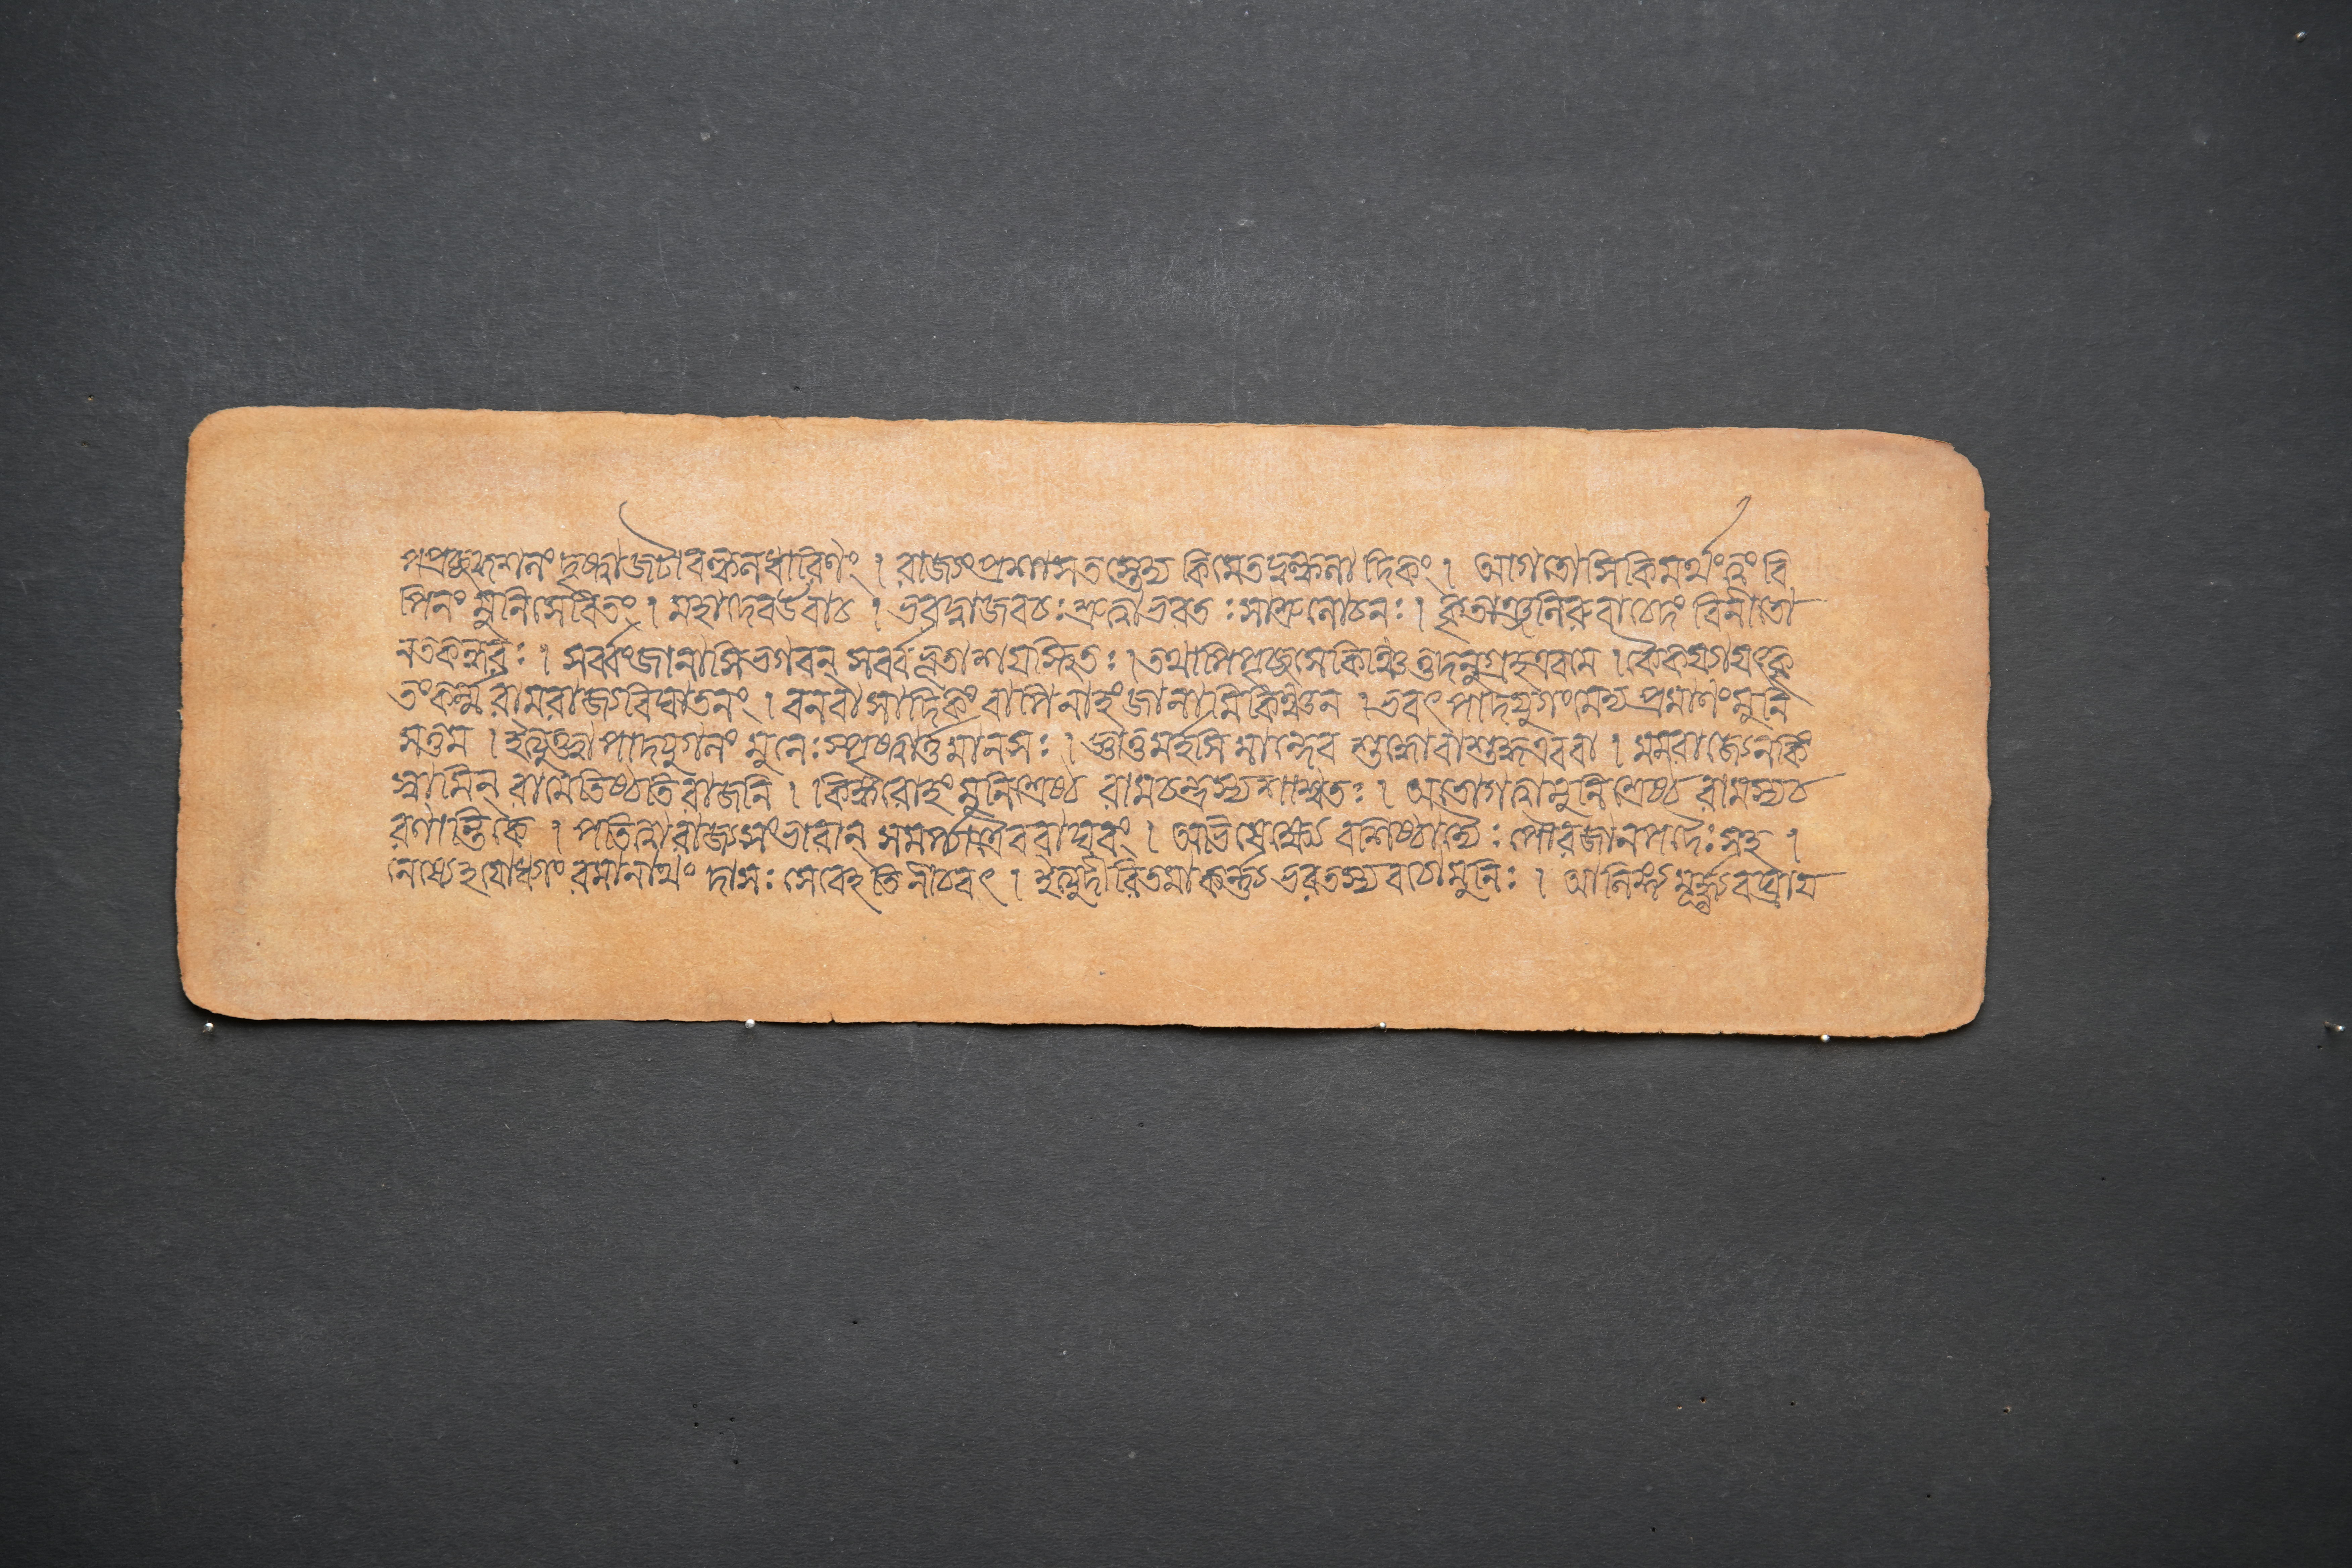 পপ্রচ্ছকুশলং দৃষ্ট্বাজটাবল্কলধারিণং । রাজ্যংপ্রশাসতস্তেদ্য কিমেতদ্বল্কলাদিকং । আগতোসিকিমর্থংত্বং বি
পিনং মুনিসেবিতং । মহাদেবউবাচ । ভরদ্বাজবচঃশ্রুত্বাভরতঃসাশ্রুলোচনঃ । কৃতাঞ্জলিরুবাচেদং বিনীতো
নতকন্ধরঃ । সর্ব্বংজানাসিভগবন্ সর্ব্বভূতাশয়স্থিতঃ । তথাপিপৃচ্ছসেকিঞ্চিত্তদনুগ্রহএবমে । কৈকেয্যাযৎকৃ
তংকর্ম্মরামরাজ্যবিঘাতনং । বনবাসাদিকংবাপিনাহংজানামিকিঞ্চন । ভবৎপাদযুগংমেদ্য প্রমাণংমুনি
সত্তম । ইত্যুক্ত্বাপাদযুগলং মুনেঃস্পৃষ্ট্বার্ত্তমানসঃ । জ্ঞাতুমর্হসি মান্দেব শুদ্ধোবাশুদ্ধএববা । মমরাজ্যেনকিং
স্বামিন্ রামেতিষ্ঠতিরাজনি । কিঙ্করোহংমুনিশ্রেষ্ঠ রামচন্দ্রস্যশাশ্বতঃ । অতোগত্বামুনিশ্রেষ্ঠ রামস্যচ
রণান্তিকে । পতিত্বারাজ্যসংভারান্ সমর্প্যাত্রৈবরাঘবং । অভিষেক্ষ্যে বশিষ্ঠাদ্যৈঃ পৌরজানপদৈঃসহ ।
নেষ্যেহযোধ্যাং রমানাথং দাসঃ সেবেহতিনীচবৎ । ইত্যুদীরিতমাকর্ণ্য ভরতস্যবচোমুনিঃ । আলিঙ্গ্যমূর্দ্ধ্ন্যবঘ্রায়